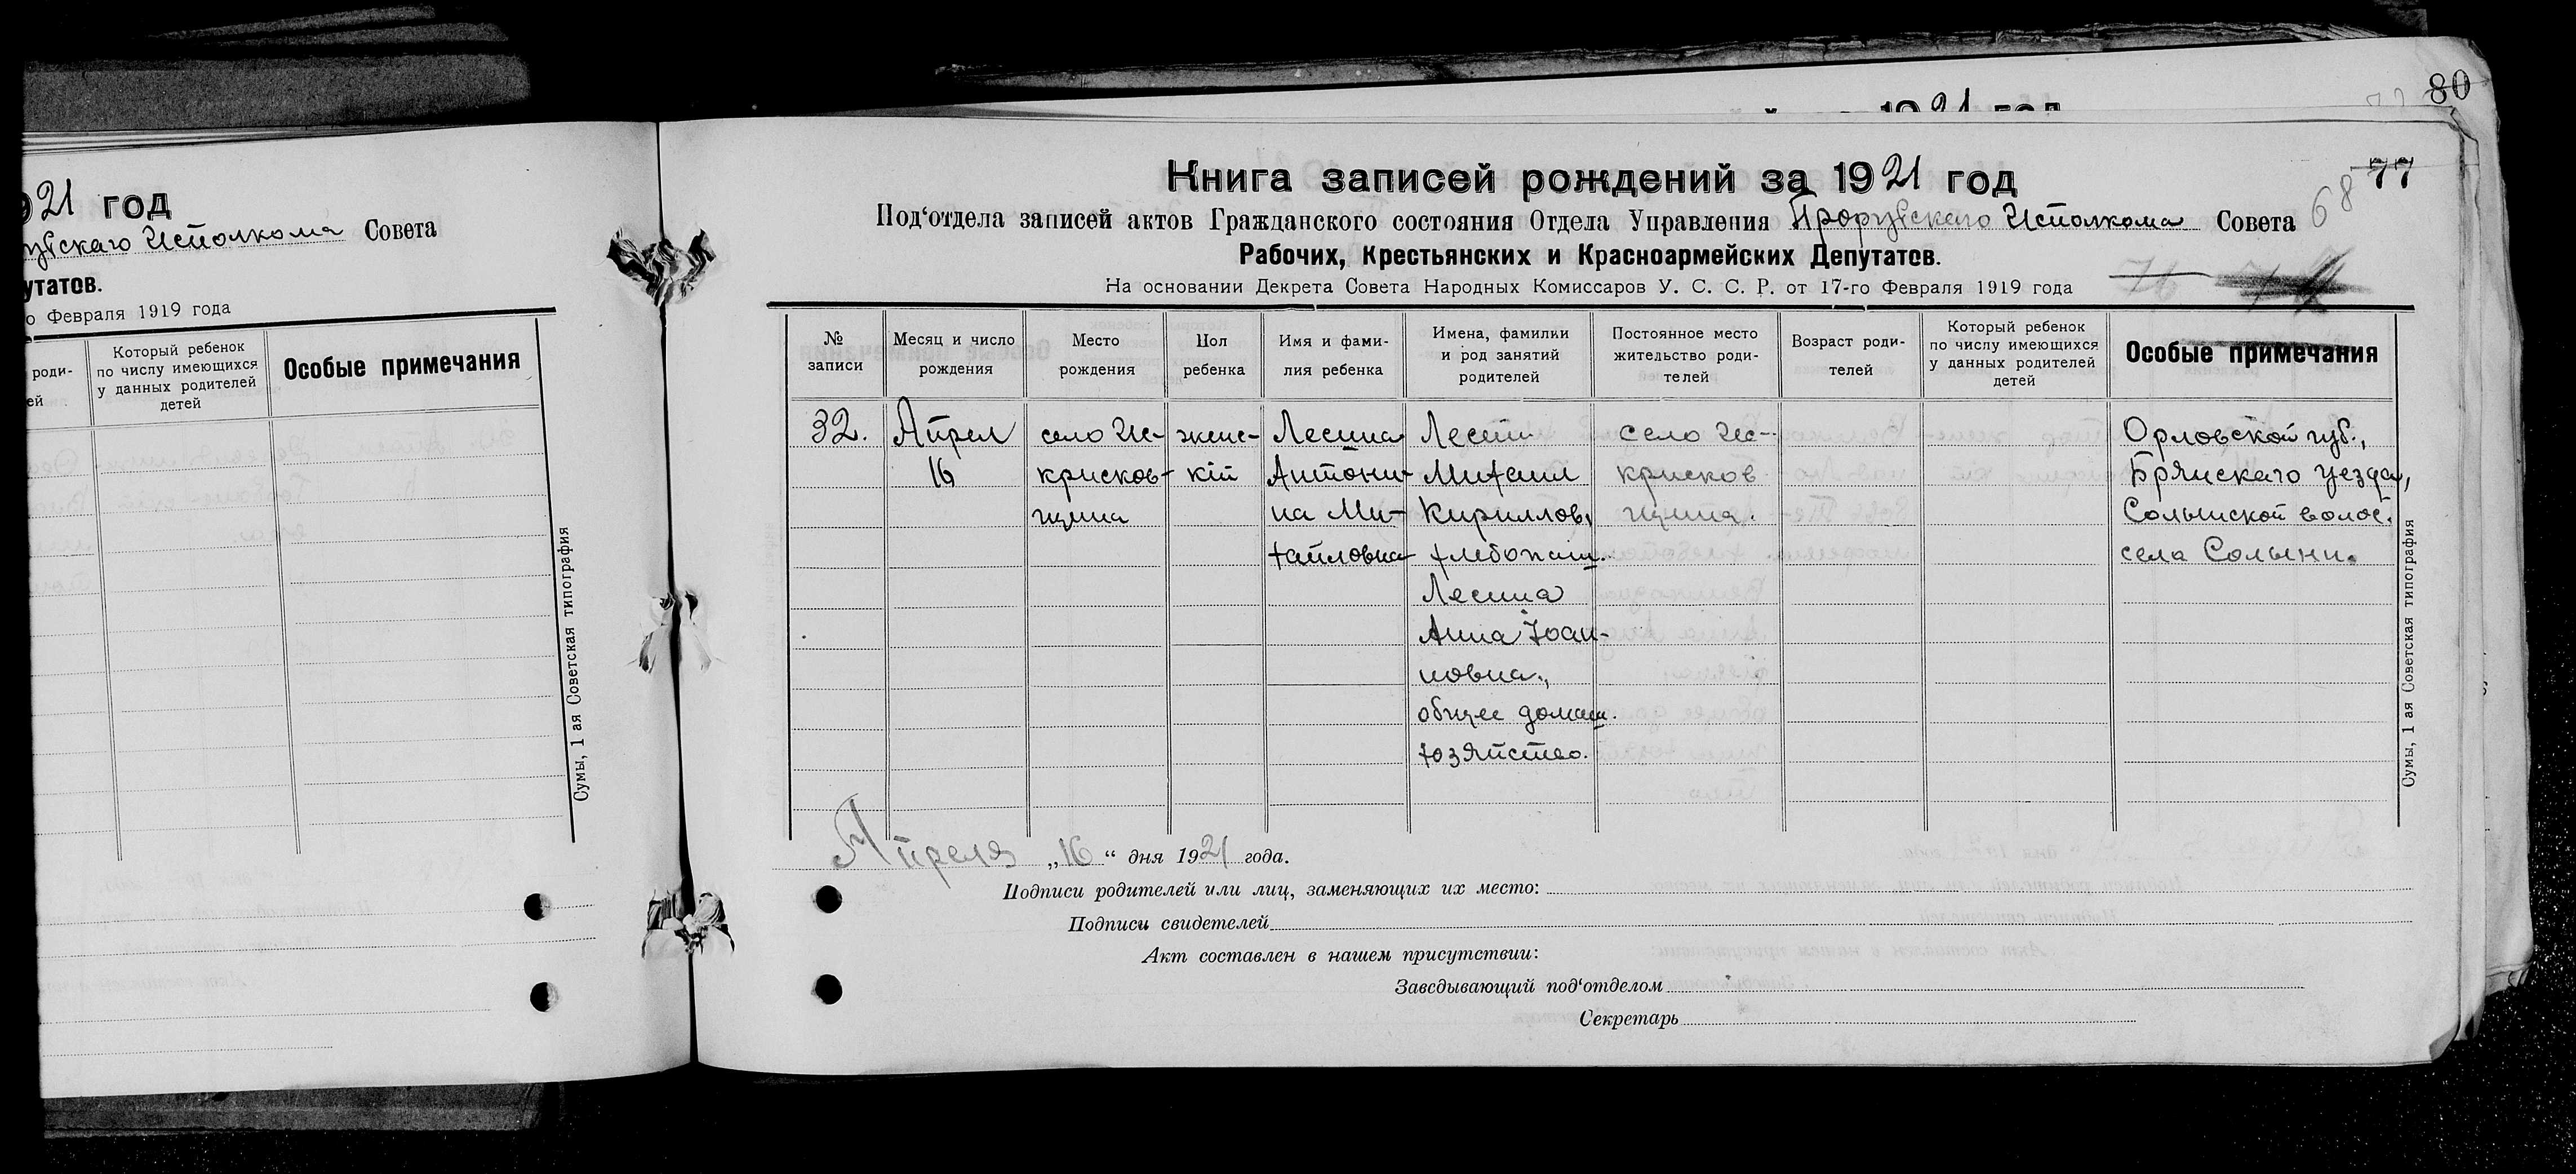 80
1921 год
921 год
Исполкома Совета
утатов.
о Февраля 1919 года
роди-
ей
Который ребенок
по числу имеющихся
у данных родителей
детей
Особые примечания
Сумы, 1 ая Советская типография
Книга записей рождений за 1921 год
77
68
Под‘отдела записей актов Гражданского состояния Отдела Управления Прорубскаго Исполкома Совета
Рабочих, Крестьянских и Красноармейских Депутатов.
На основании Декрета Совета Народных Комиссаров У. С. С. Р. от 17-го Февраля 1919 года
76
№
записи
Месяц и число
рождения
Место
рождения
Пол
ребенка
Имя и фами-
лия ребенка
Имена, фамилии
и род занятий
родителей
Постоянное место
жительство роди-
телей
Возраст роди-
телей
Который ребенок
по числу имеющихся
у данных родителей
детей
Особые примечания
32.
Апрел
16
село Ис-
крисков-
щина
женс-
кій
Лесина
Антони-
на Ми-
хайловна
Лесин
Михаил
Кириллов,
хлебопаш.
Лесина
Анна Іоан-
новна,
общее домаш.
хозяйство.
село Ис-
крисков
щина.
Орловской губ.,
Брянскаго уезда,
Солынской волос.
села Солыни.
Сумы, 1 ая Советская типография
Апреля „16“ дня 1921 года.
Подписи родителей или лиц, заменяющих их место:
Подписи свидетелей
Акт составлен в нашем присутствии:
Заведывающий под‘отделом
Секретарь